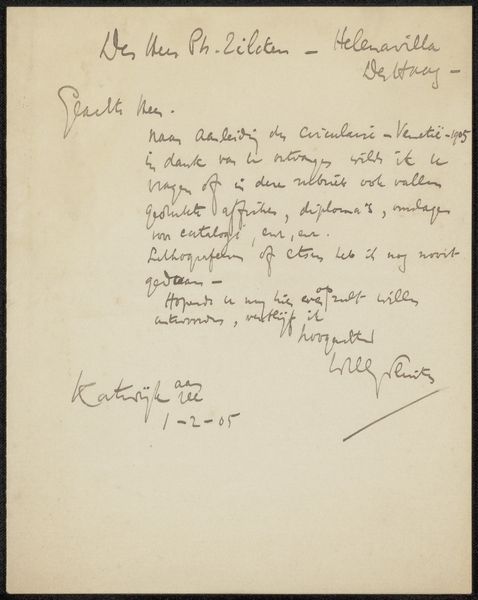 Den Heer Ph. Zilcken – Helenavilla
Den Haag –
Geachte Heer.
Naar aanleiding der circulaire – Venetië – 1905
in dank van U ontvangen wilde ik U
vragen of in deze rubriek ook vallen
gedrukte affiches, diploma's, omslagen
voor catalogi, enz, enz.
Lithografieën of etsen heb ik nog nooit
gedaan –
Hopende U mij hier op zult willen
antwoorden, verblijf ik
hoogachtend
Willy Sluiter
Katwijk aan
Zee
1–2–05